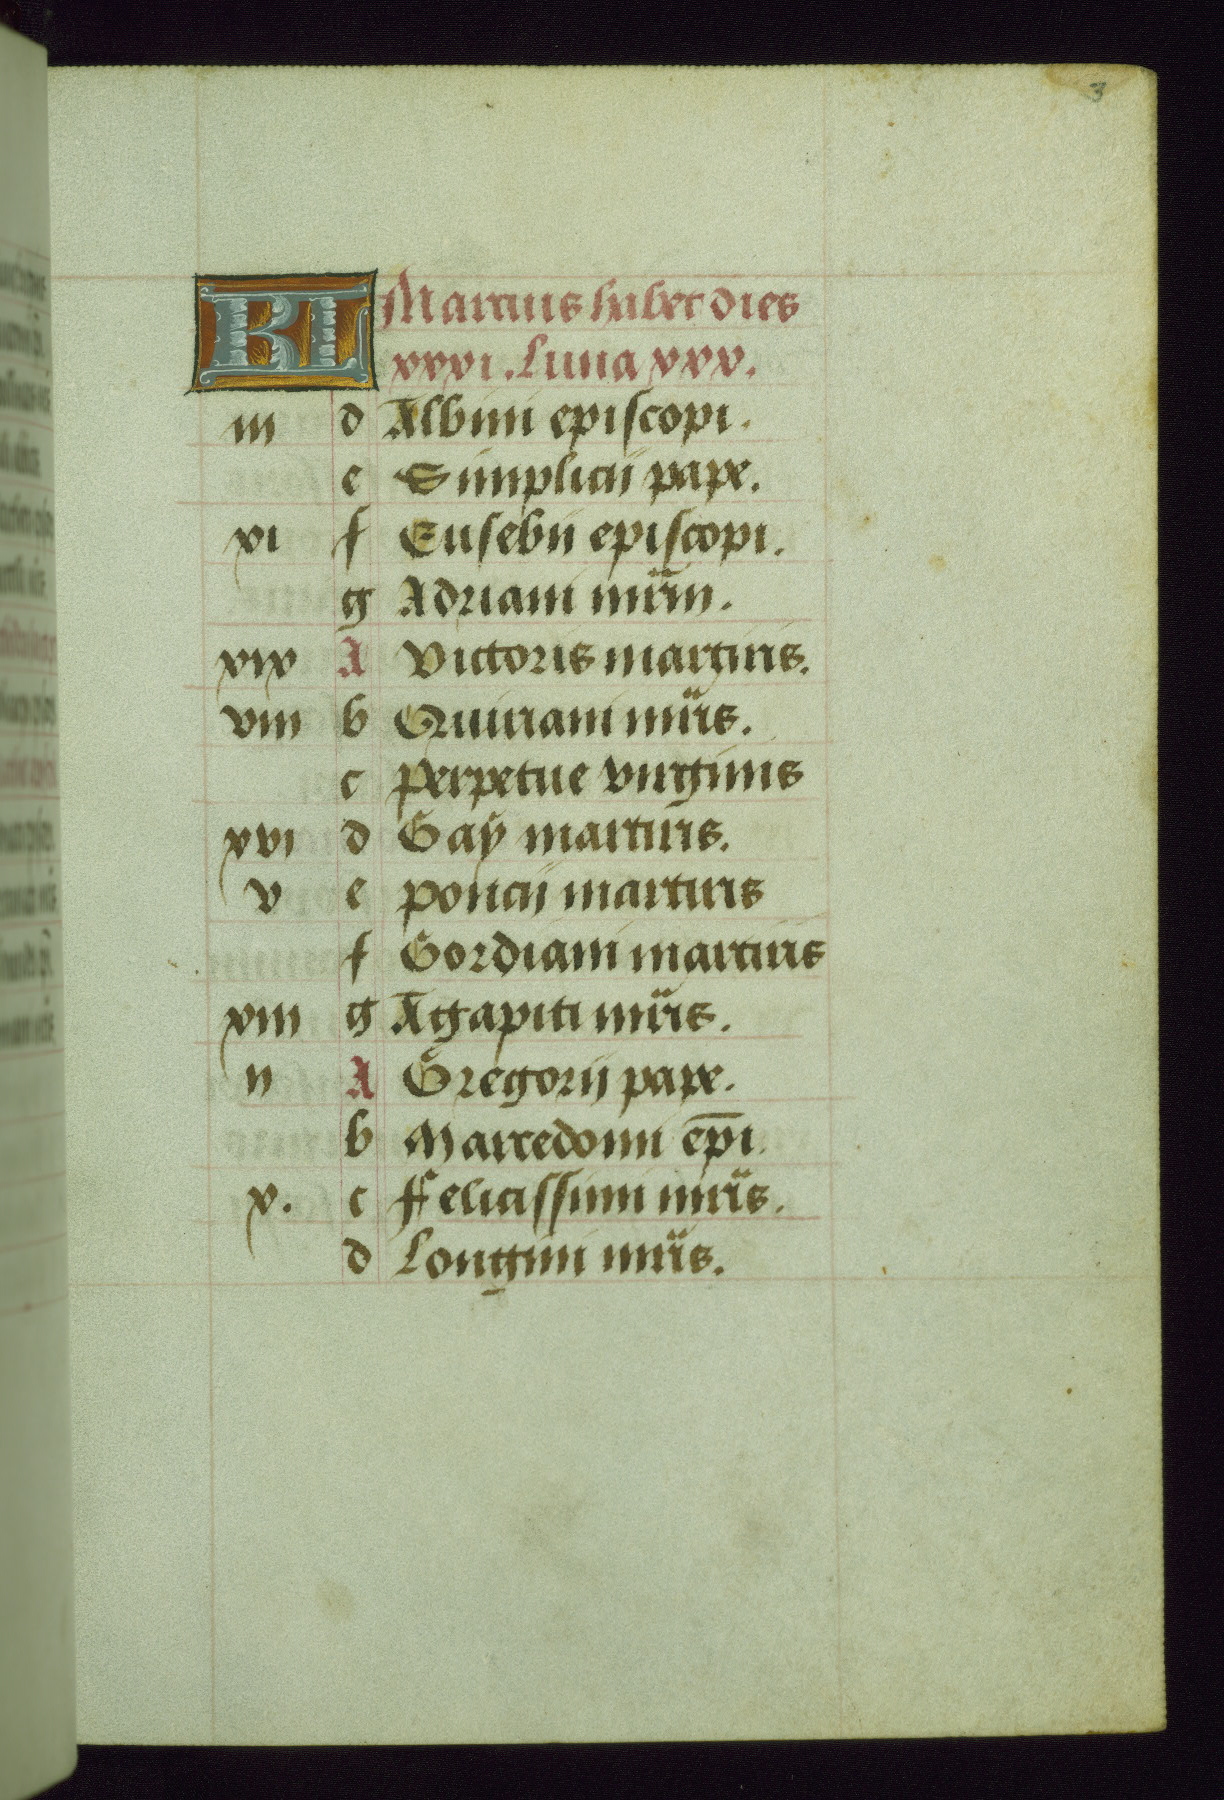 3
KL Marcius habet dies
xxxi. Luna xxx.
iii d Albini episcopi.
e Simplicii pape.
xi f Eusebii episcopi.
g Adriani mr̃m.
xix A Victoris martiris.
viii b Quiriani mr̃is.
c Perpetue virginis
xvi d Gaÿ martiris.
v e Poncii martiris
f Gordiani martiris
xiii g Agapiti mr̃is.
ii A Gregorii pape.
b Marcedonii ep̅i.
x. c Felicissimi mr̃is.
d Longini mr̃is.